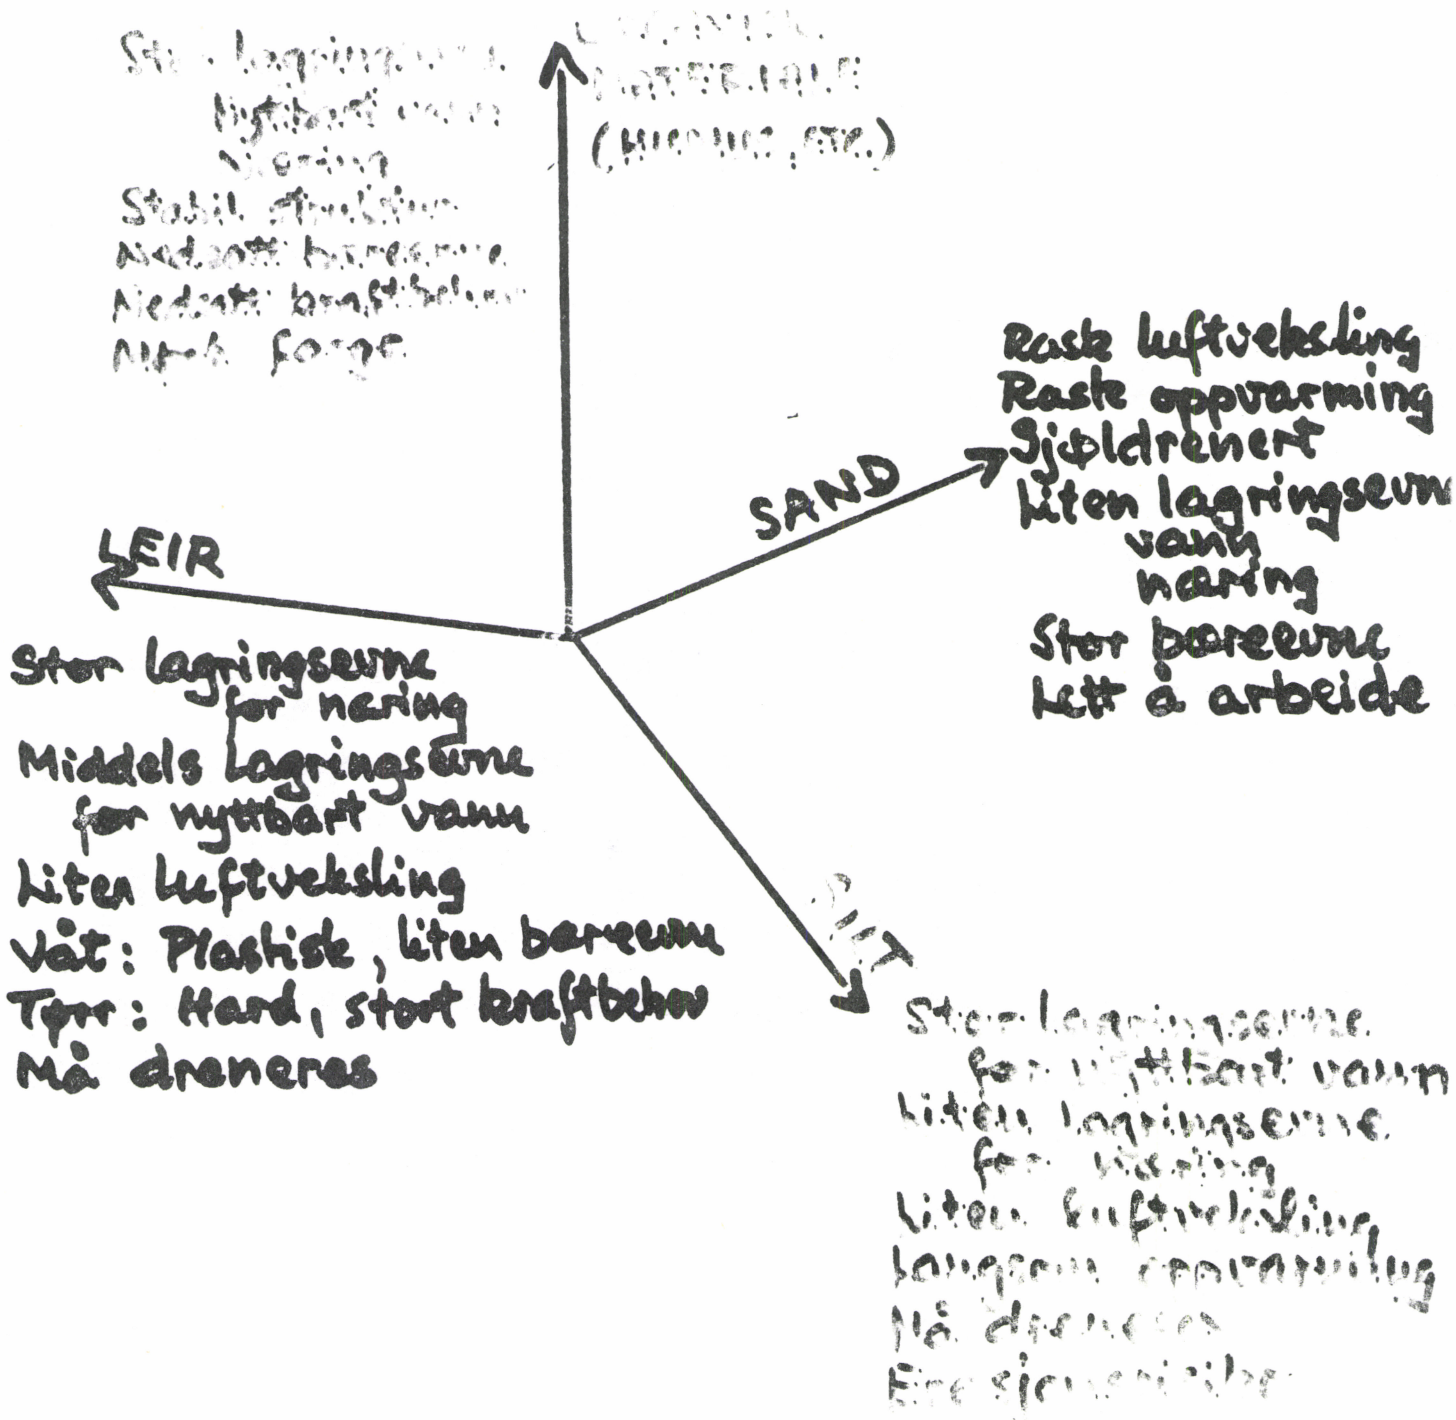 Stor lagringsevne
Nyttbart vann
Næring
Stabil struktur
Nedsatt bæreevne
Nedsatt kraftbehov
Mørk farge
ORGANISK
MATERIALE
(HUMUS, ETC.)
SAND
Rask luftveksling
Rask oppvarming
Sjøldrenert
Liten lagringsevne
vann
næring
Stor bæreevne
Lett å arbeide
LEIR
Stor lagringsevne
for næring
Middels lagringsevne
for nyttbart vann
Liten luftveksling
Våt: Plastisk, liten bæreevne
Tørr: Hard, stort kraftbehov
Må dreneres
SILT
Stor lagringsevne
for nyttbart vann
Liten lagringsevne
for næring
Liten luftveksling
Langsom oppvarming
Må dreneres